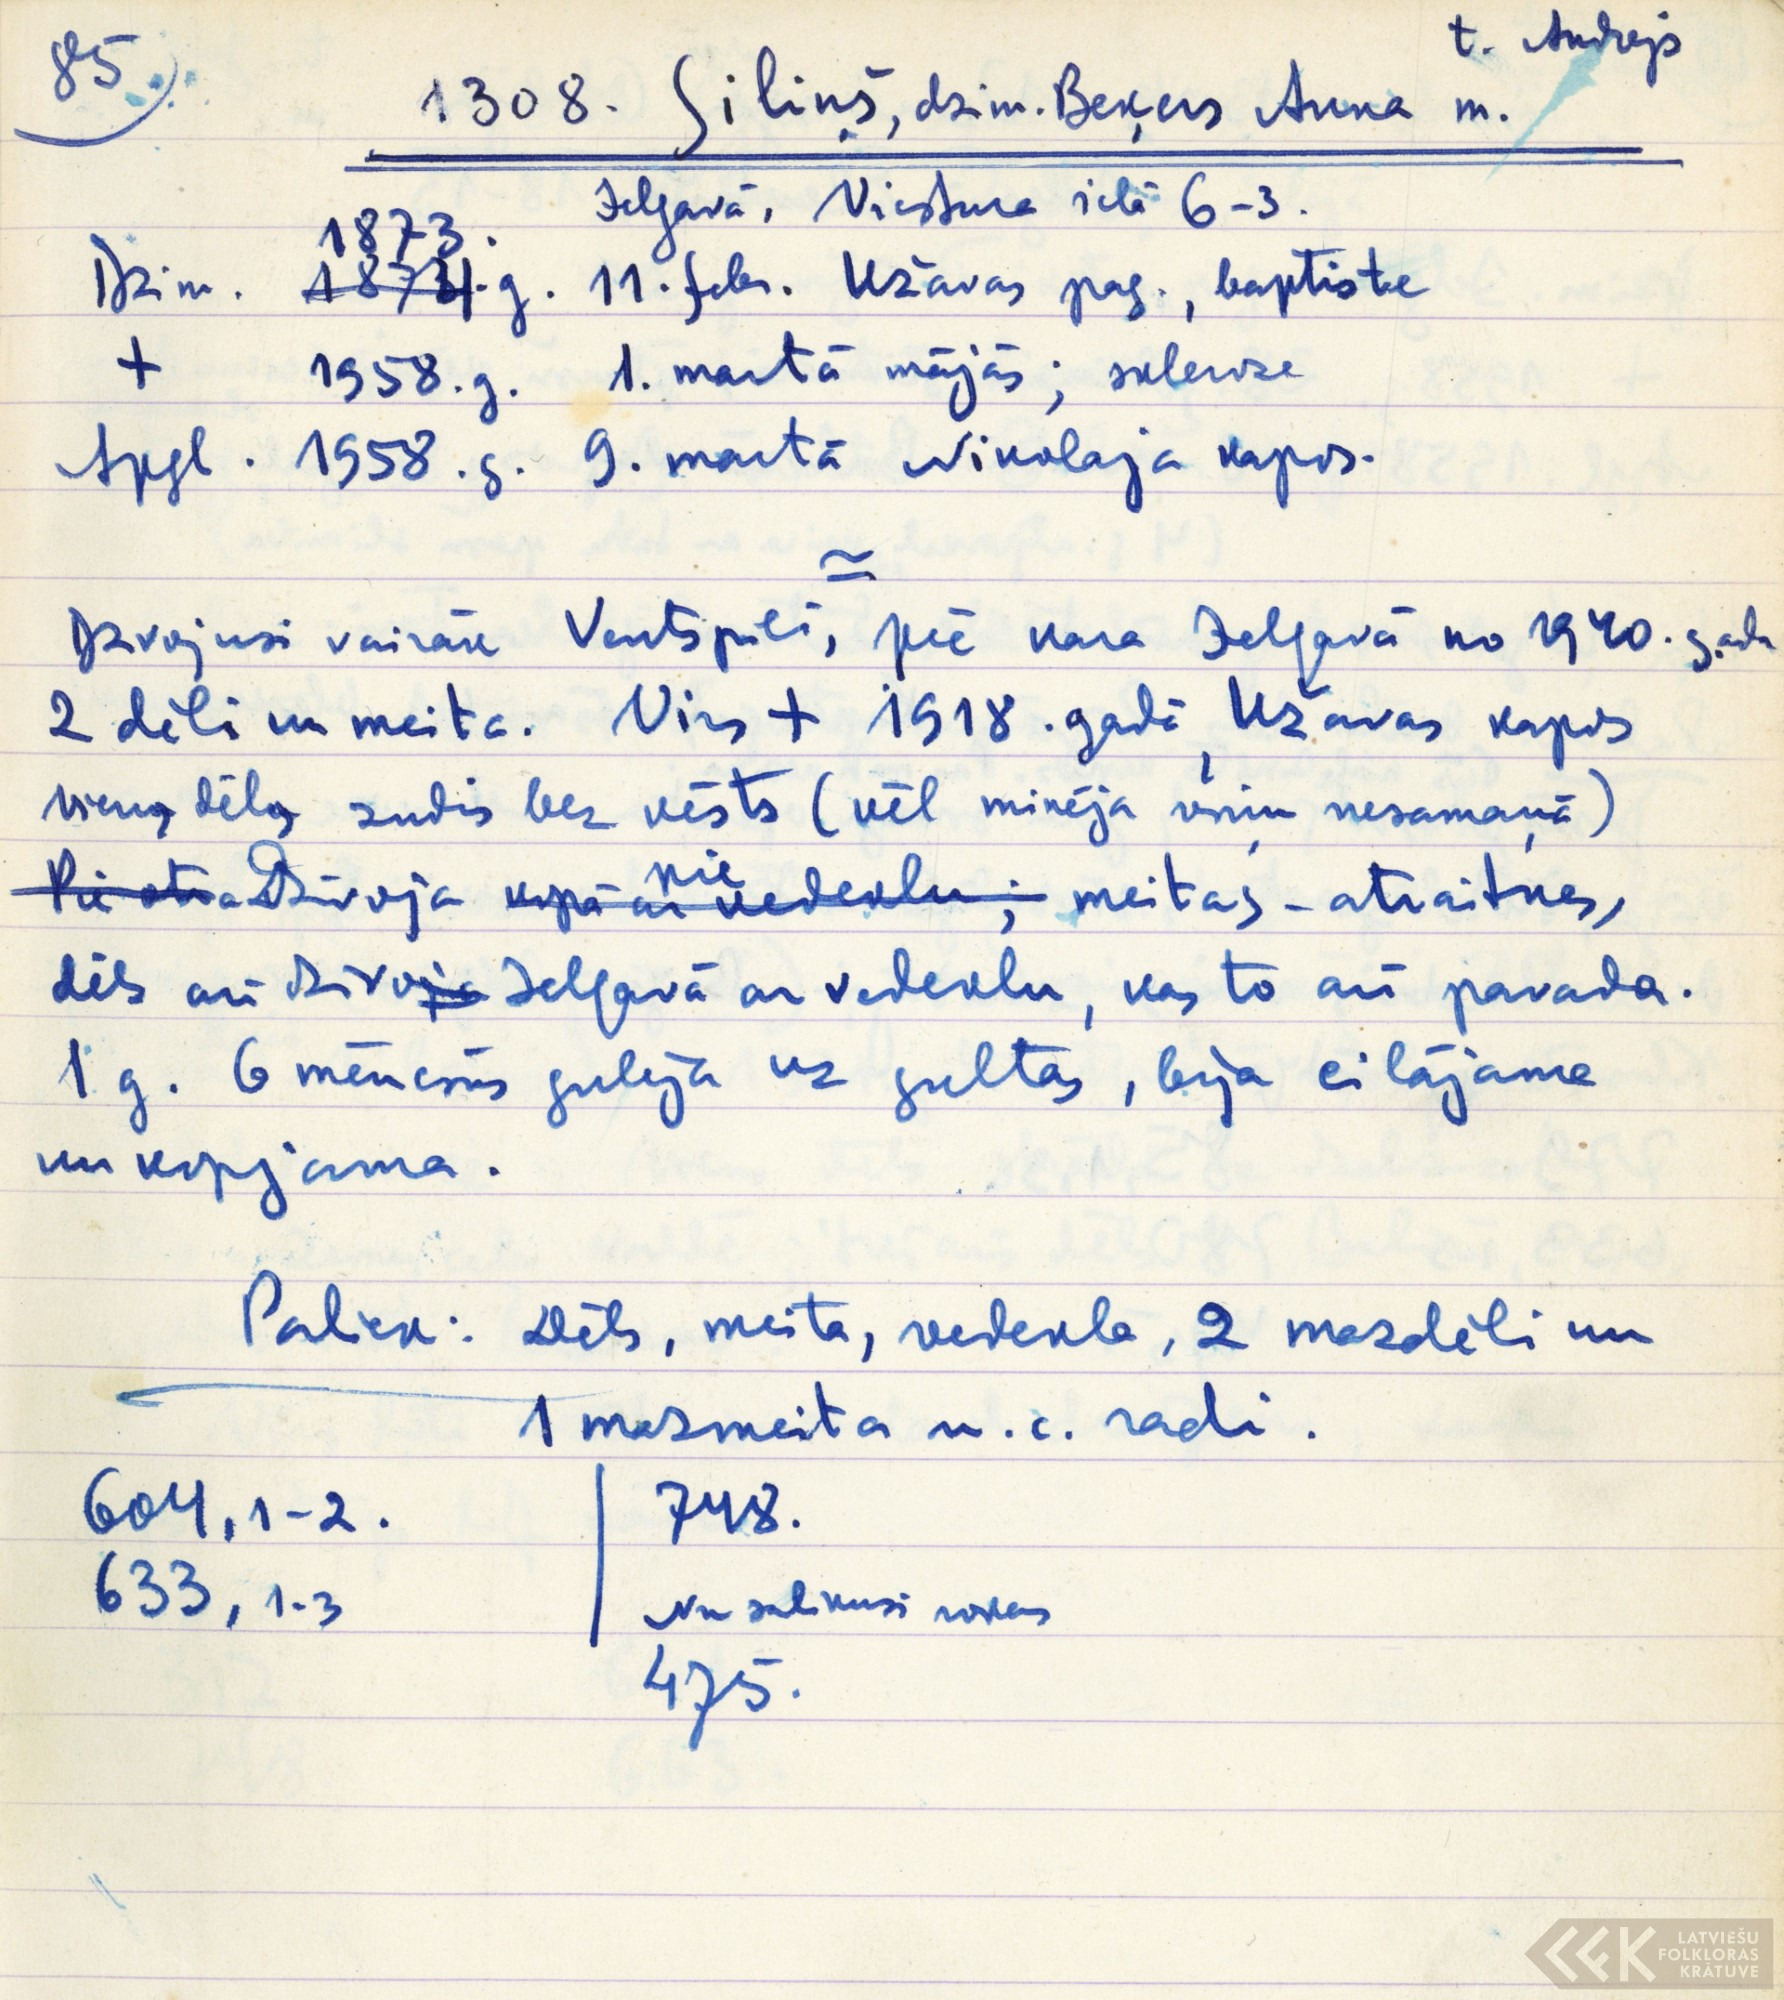 85
t. Andrejs
1308. Siliņš, dzim. Beķers Anna m.
Jelgavā, Viestura ielā 6-3.
1873.
Dzim. 1874.g. 11. febr. Užavas pag., baptiste
+ 1958.g. 1. martā mājās; skleroze
Apgl. 1958.g. 9. martā Nikolaja kapos.
≃
Dzvojusi vairāk Ventspilī, pēc kara Jelgavā no 1940. gada
2 dēli un meita. Vīrs + 1918. gadā, Užavas kapos
vienq dēls zudis bez vēsts (vēl minēja viņu nesamaņā)
Pie otra Dzīvoja kopā ar vedeklu; pie meitas-atraitnes,
dēls arī dzīvoja Jelgavā ar vedeklu, kas to arī pavada.
1 g. 6 mēnešus gulēja uz gultas, bija cilājama
un kopjama.
Paliek: Dēls, meita, vedekla, 2 mazdēli un
1 mazmeita u.c. radi.
604, 1-2. 748.
633, 1-3 Nu salikusi rokas
475.
LATVIEŠU
FOLKLORAS
KRĀTUVE